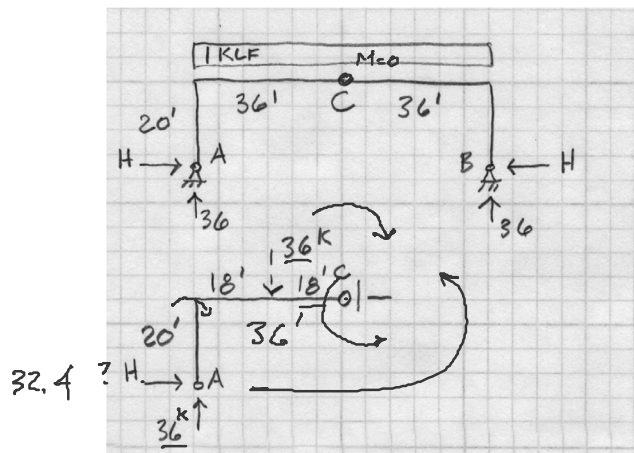 1 KLF M=0
36' C 36'
20'
H A B H
36 36
36K
18' 18' C
20' 36'
32.4 ? H A
36K